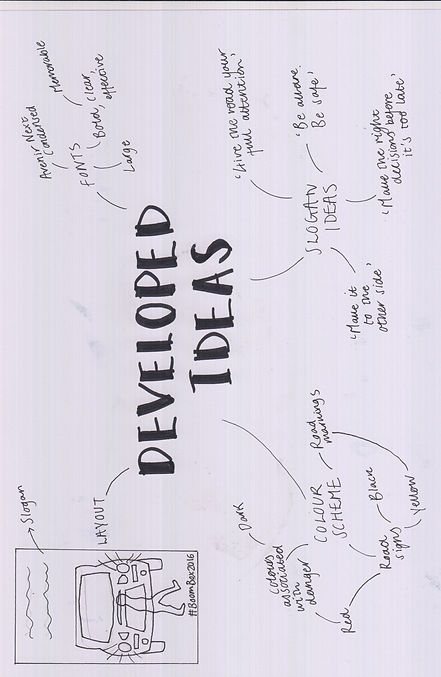 DEVELOPED
IDEAS
LAYOUT
Slogan
#BoomBox2016
FONTS
Avenir Next
Condensed
Memorable
Bold, Clear,
effective
Large
SLOGAN
IDEAS
'Give the road your
full attention'
'Be aware.
Be safe'
'Make the right
decisions before
it's too late'
'Make it
to the
other side'
COLOUR
SCHEME
Road
markings
Dark
Colours
associated
with
danger
Red
Road
signs
Black
Yellow